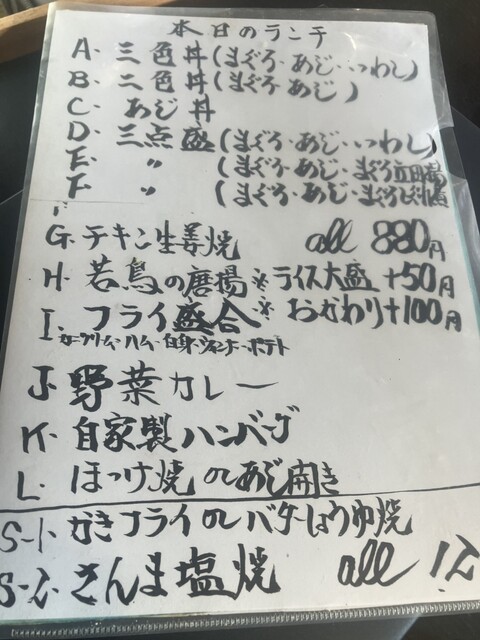 本日のランチ
A. 三色丼(まぐろ・あじ・いわし)
B. 二色丼(まぐろ・あじ)
C. あじ丼
D. 三点盛(まぐろ・あじ・いわし)
E. 〃 (まぐろ・あじ・まぐろ立田揚
F. 〃 (まぐろ・あじ・まぐろ
G. チキン生姜焼 all 880円
H. 若鳥の唐揚 ※ライス大盛 +50円
I. フライ盛合 ※ おかわり+100円
ハム・白身・ウィンナー・ポテト
J. 野菜カレー
K. 自家製ハンバーグ
L. ほっけ焼 orあじ開き
S-1. かきフライorバターしょうゆ焼
S-2. さんま塩焼 all